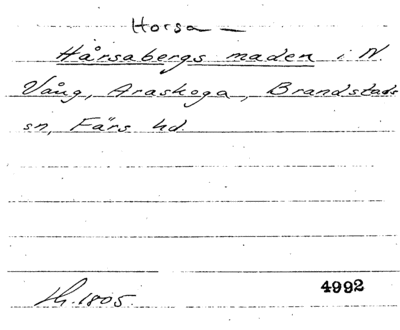 Horsa —
Hårsabergs maden i N.
Vång, Araskoga, Brandstads
sn, Färs hd.
Lh. 1805.
4992